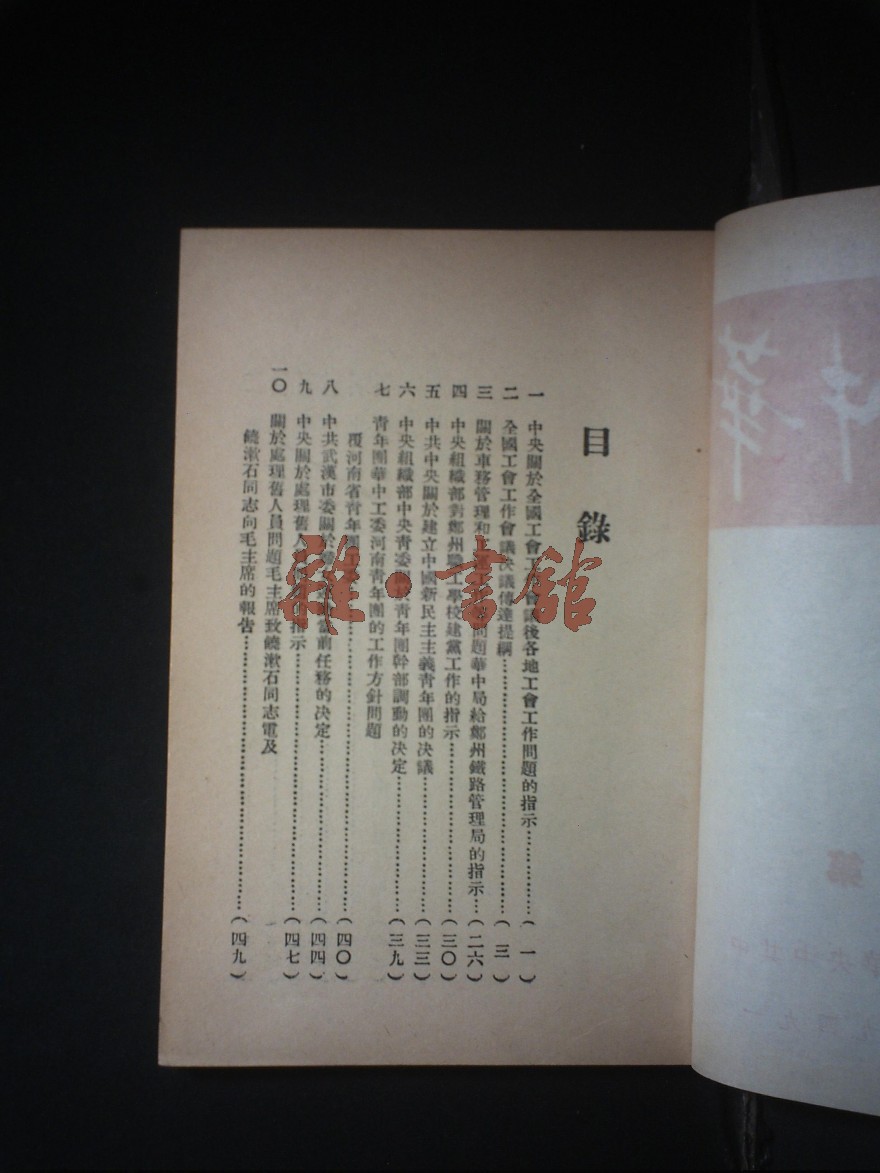 目錄
一 中央關於全國工會工作會議後各地工會工作問題的指示…………(一)
二 全國工會工作會議決議傳達提綱…………(三)
三 關於車務管理和 問題華中局給鄭州鐵路管理局的指示…………(二六)
四 中央組織部對鄭州職工學校建黨工作的指示…………(三〇)
五 中共中央關於建立中國新民主主義青年團的決議…………(三三)
六 中央組織部中央青委關於青年團幹部調動的決定…………(三九)
七 青年團華中工委河南青年團的工作方針問題
覆河南省青年團 …………(四〇)
八 中共武漢市委關於 當前任務的決定…………(四四)
九 中央關於處理舊人 的指示…………(四七)
一〇 關於處理舊人員問題毛主席致饒漱石同志電及
饒漱石同志向毛主席的報告…………(四九)
雜·書館